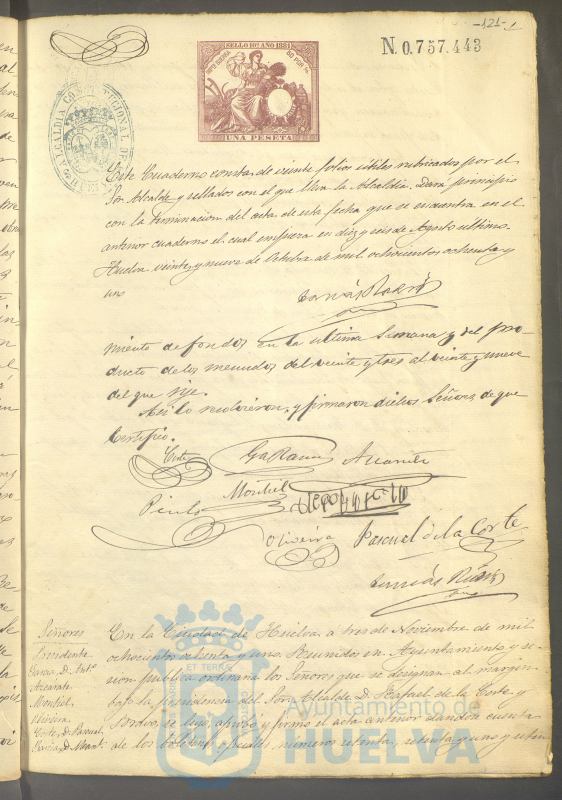 -121-
SELLO 10º AÑO 1881
N.0.757.443
UNA PESETA
ALCALDIA CONSTITUCIONAL DE
Este Cuaderno consta de veinte folios útiles rubricados por el
Sor Alcalde y sellados con el que lleva la Alcaldia. Dará principio
con la terminacion del acta de esta fecha que se encuentra en el
anterior cuaderno el cual empieza en diez y seis de Agosto ultimo.
Huelva veinte y nueve de Octubre de mil ochocientos ochenta y
uno
miento de fondos en la ultima Semana y del pro-
ducto de los menudos del veinte y tres al veinte y nueve
del que rije.
Asi lo acordaron, y firmaron dichos Señores de que
Certifico.
Corte
Montiel
Oliveira
Pascual de la Corte
Señores
Presidente
Garcia, D. Antº
Azcarate
Montiel
Oliveira
Corte, D. Pascual
Garcia, D. Man.
En la Ciudad de Huelva á tres de Noviembre de mil
ochocientos ochenta y uno. Reunidos en Ayuntamiento y se-
sion publica ordinaria los Señores que se designan al margen
bajo la presidencia del Sor. Alcalde D. Rafael de la Corte y
Bravo, se leyó, aprobó y firmó el acta anterior dandose cuenta
de los boletines oficiales números setenta, setenta y uno y seten
Ayuntamiento de
HUELVA